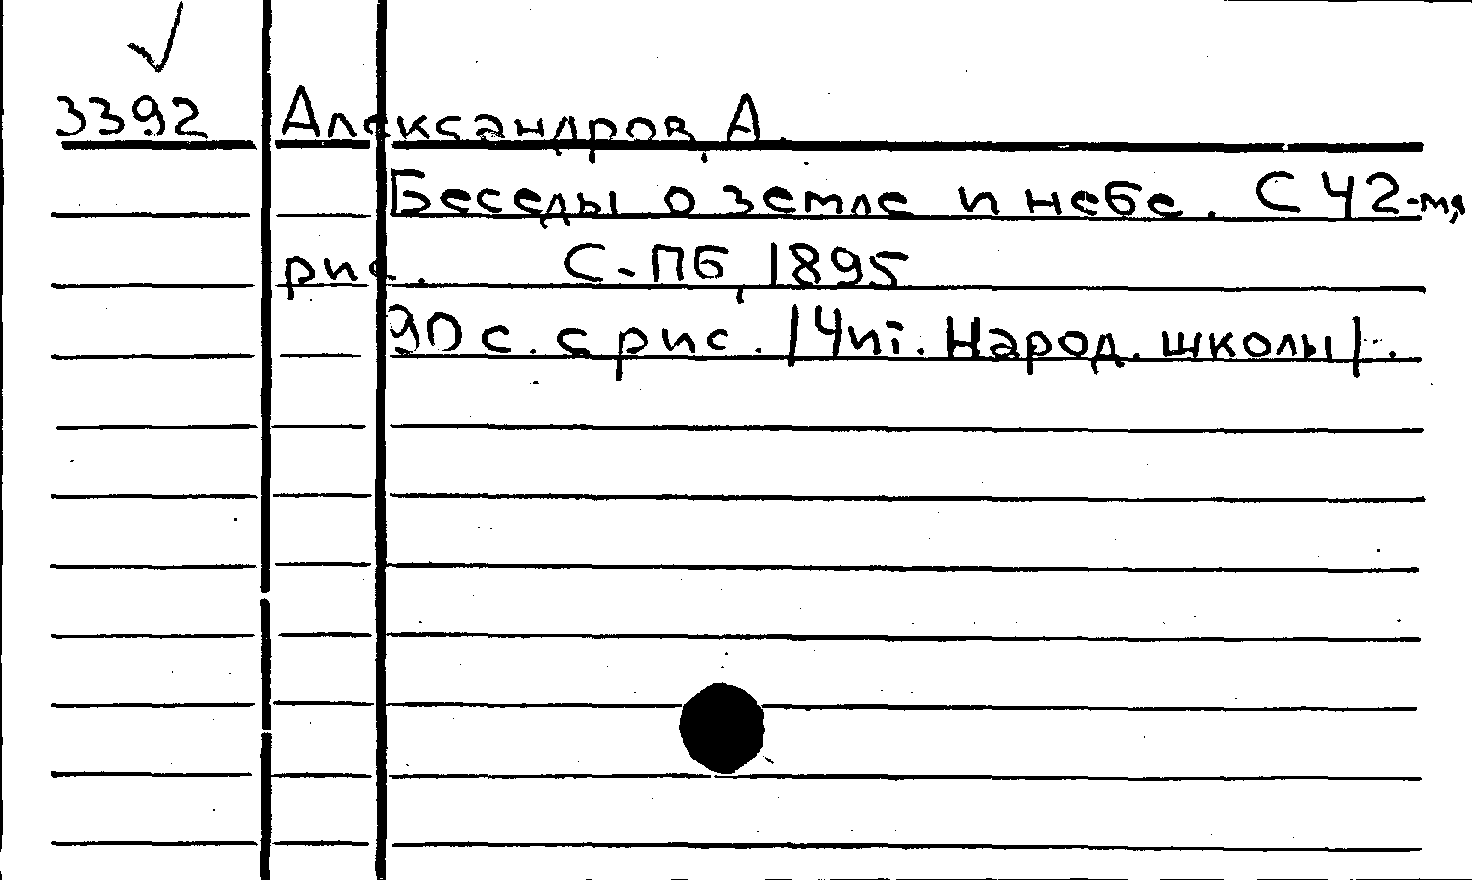 3392 Александров, А.
Беседы о земле и небе. С 42-мя
рис. С-ПБ, 1895
90 с. с рис. /Чит. Народ. школы/.